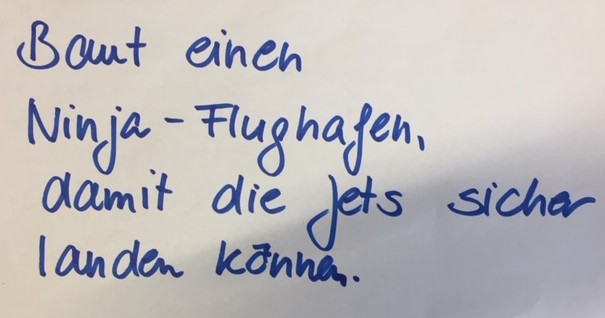 Baut einen
Ninja-Flughafen,
damit die Jets sicher
landen können.